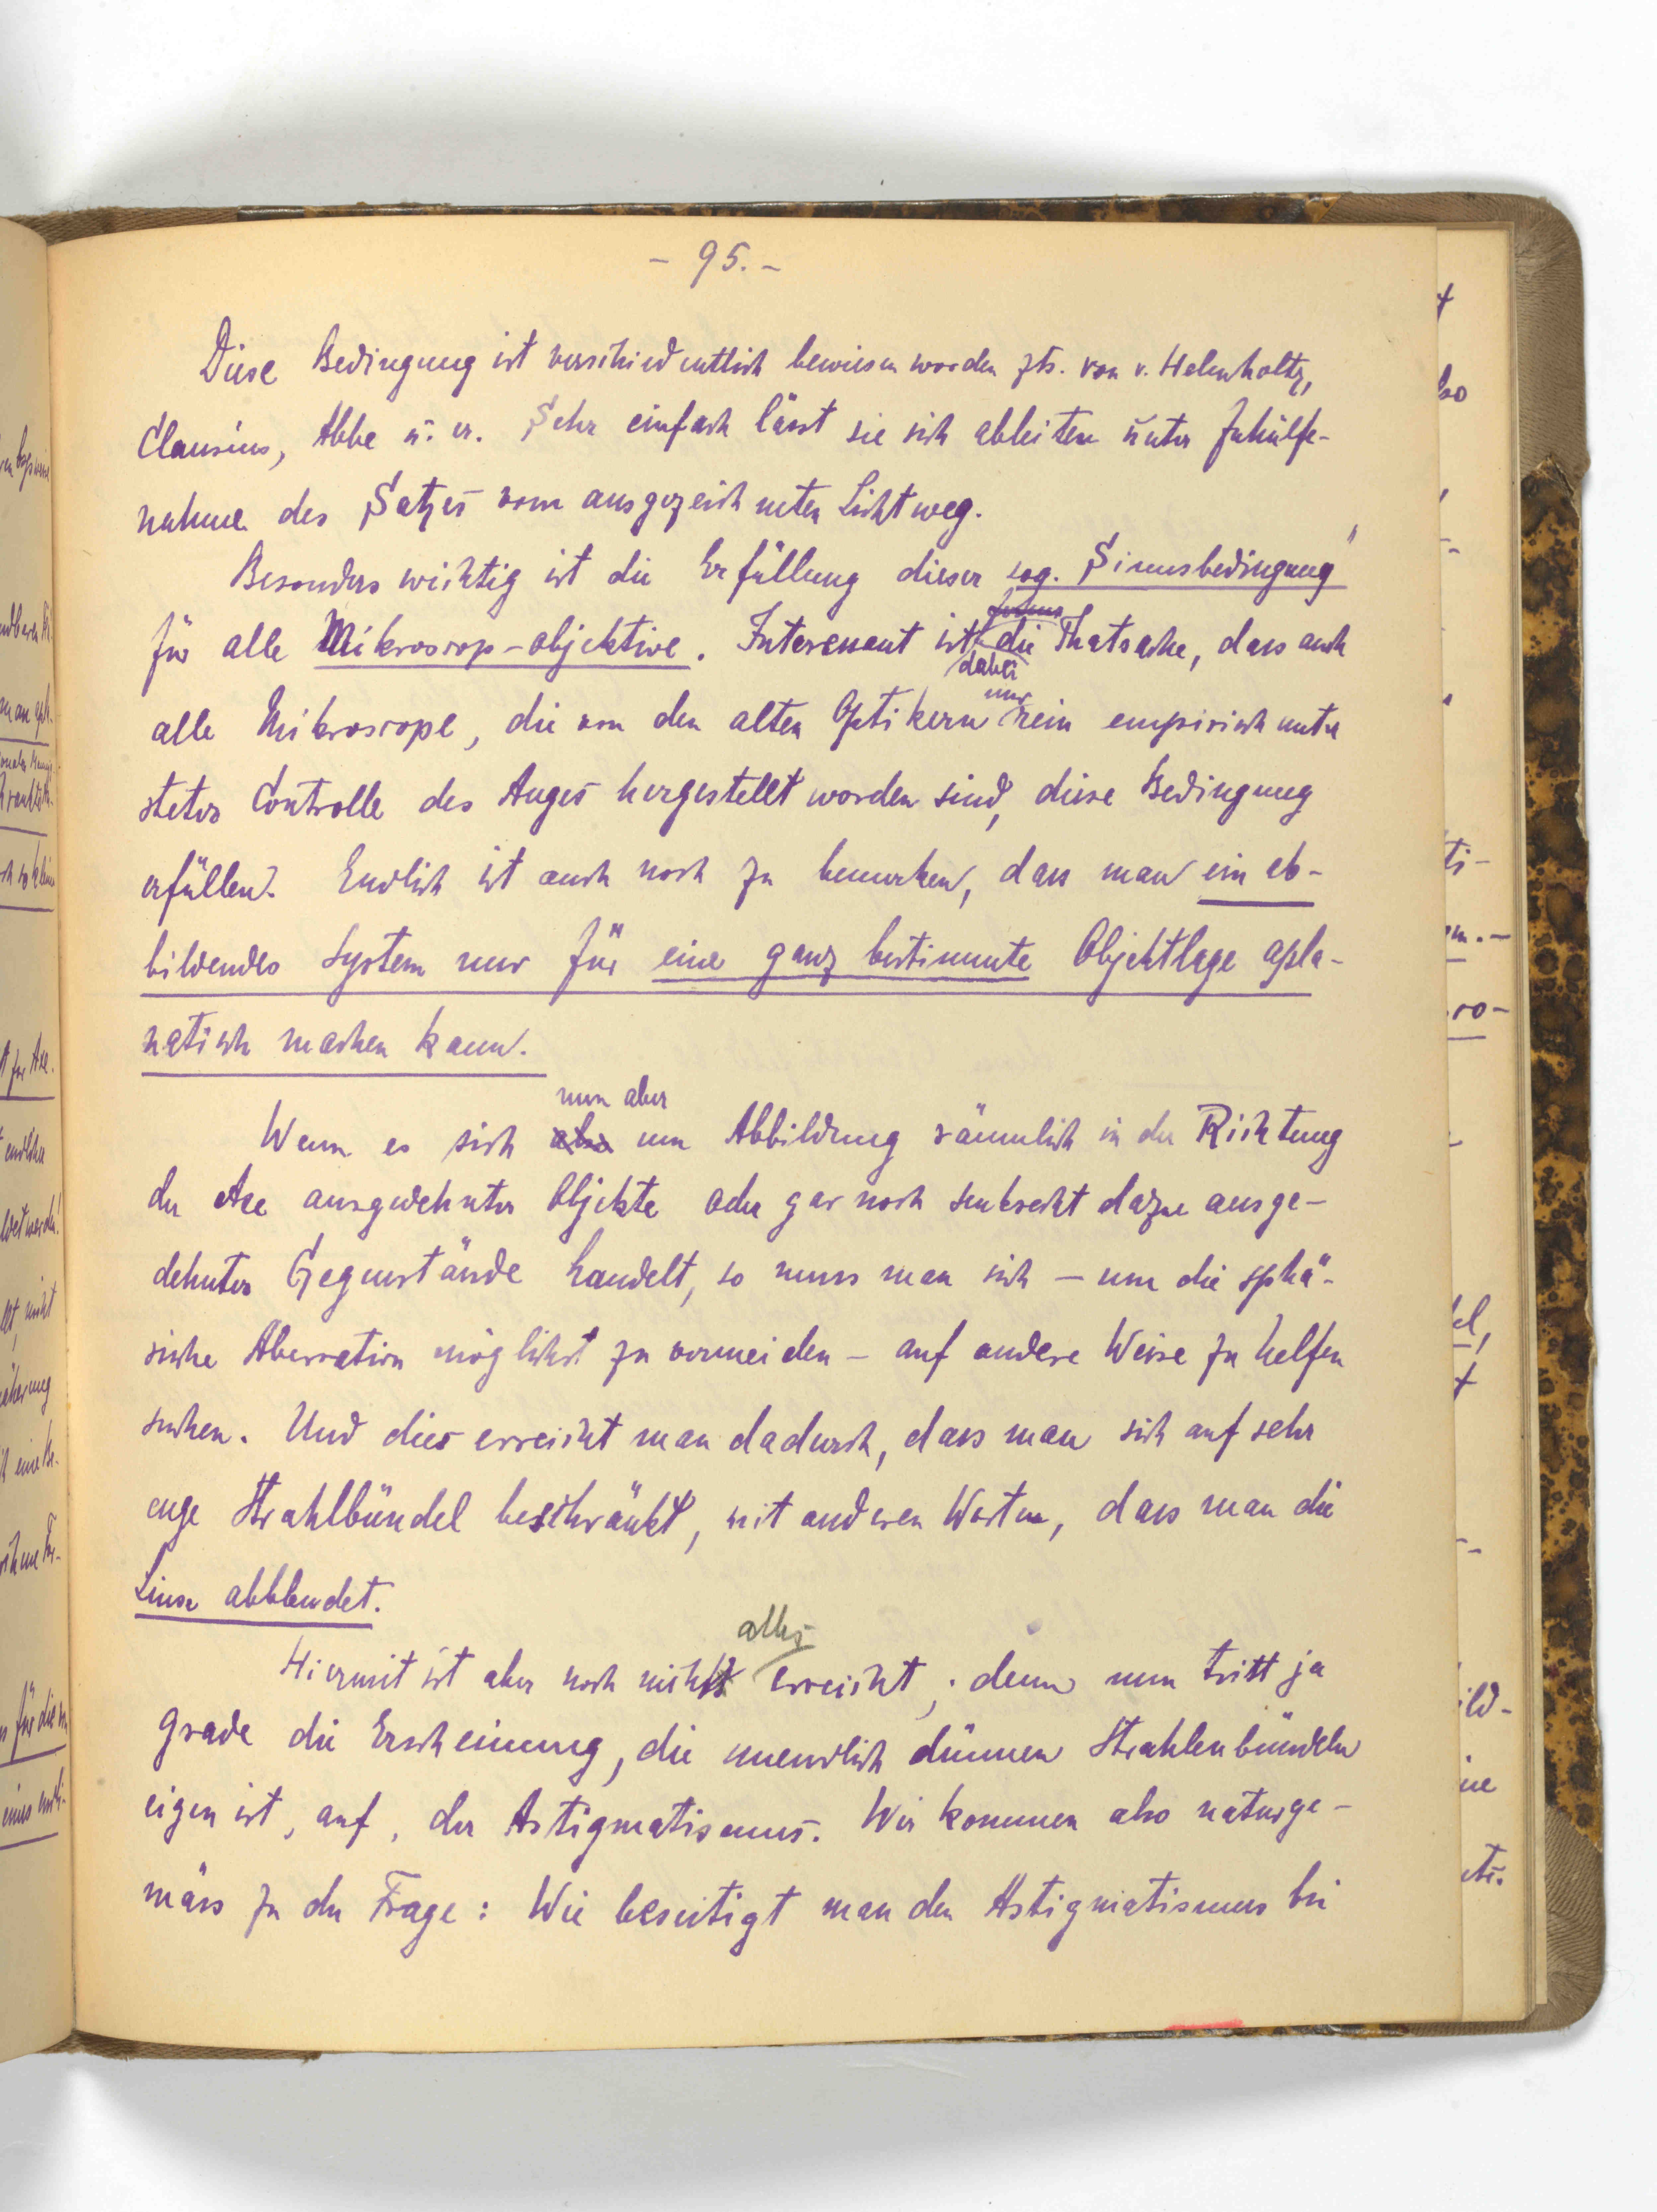 - 95. -
Diese Bedingung ist verschiedentlich bewiesen worden von v. Helmholtz,
Clausius, Abbe u. a. Sehr einfach lässt sie sich ableiten unter Zuhülfe-
nahme des Satzes vom ausgezeichneten Lichtweg.
Besonders wichtig ist die Erfüllung dieser sog. Sinusbedingung"
für alle Mikroscop-objektive. Interessant ist dabei die Thatsache, dass auch
alle Mikroscope, die von den alten Optikern nur rein empirisch unter
steter Controlle des Auges hergestellt worden sind, diese Bedingung
erfüllen. Endlich ist auch noch zu bemerken, dass man ein ab-
bildendes System nur für eine ganz bestimmte Objektlage apla-
natisch machen kann.
nun aber
Wenn es sich also um Abbildung räumlich in der Richtung
der Axe ausgedehnter Objekte oder gar noch senkrecht dazu ausge-
dehnter Gegenstände handelt, so muss man sich – um die sphä-
rische Aberration möglichst zu vermeiden – auf andere Weise zu helfen
suchen. Und dies erreicht man dadurch, dass man sich auf sehr
enge Strahlbündel beschränkt, mit anderen Worten, dass man die
Linse abblendet.
alles
Hiermit ist aber noch nicht erreicht; denn nun tritt ja
grade die Erscheinung, die unendlich dünnen Strahlenbündeln
eigen ist, auf, der Astigmatismus. Wir kommen also naturge-
mäss zu der Frage: Wie beseitigt man den Astigmatismus bei